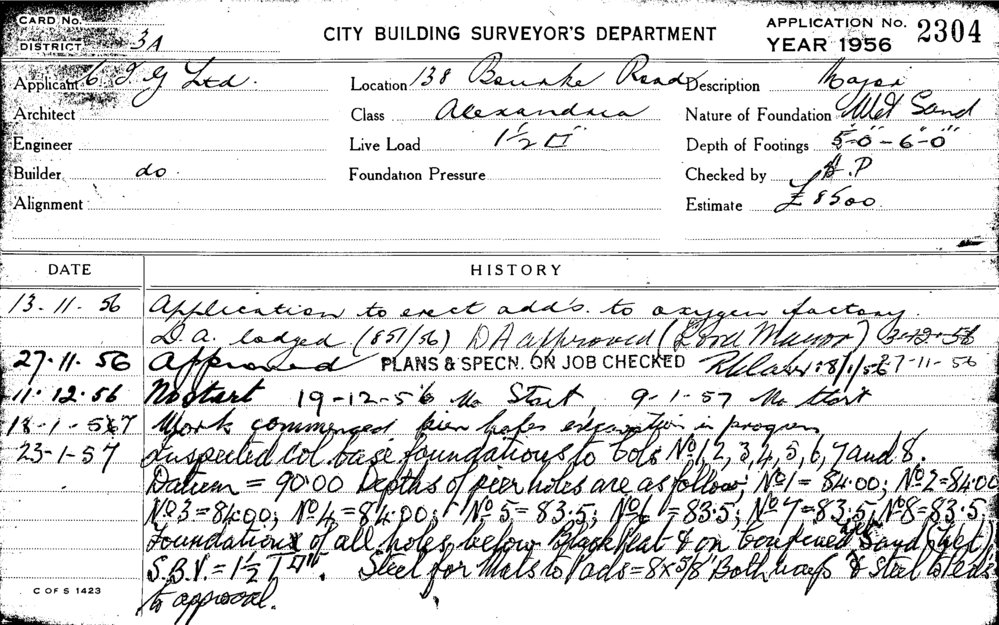 CARD No.
DISTRICT 3A
CITY BUILDING SURVEYOR'S DEPARTMENT
APPLICATION No. 2304
YEAR 1956
Applicant C I G Ltd.
Location 138 Bourke Road
Description Major
Architect
Class Alexandria
Nature of Foundation Wet Sand
Engineer
Live Load 1½ □"
Depth of Footings 5'-0" - 6'-0"
Builder do.
Foundation Pressure
Checked by H.P
Alignment
Estimate £8500
DATE HISTORY
13.11.56 Application to erect add's. to oxygen factory.
D.a. lodged (851/56) DA approved (Lord Mayor) 3-12-56
27.11.56 Approved PLANS & SPECN. ON JOB CHECKED 27-11-56
11.12.56 No start 19-12-56 No Start, 9-1-57 No start
18-1-57 Work commenced pier holes excavation in progress
23-1-57 Inspected Col. base foundations to Cols No 1, 2, 3, 4, 5, 6, 7 and 8.
Datum = 90.00 Depths of pier holes are as follow; No 1 = 84.00; No 2 = 84.00
No 3 = 84.00; No 4 = 84.00; No 5 = 83.5; No 6 = 83.5; No 7 = 83.5; No 8 = 83.5
Foundations of all holes, below Black Peat & on Confined Sand (wet)
S.B.V. = 1½ T □". Steel for Mats to Pads = 8 x 5/8 Both ways & Steel to
to approval.
C OF S 1423